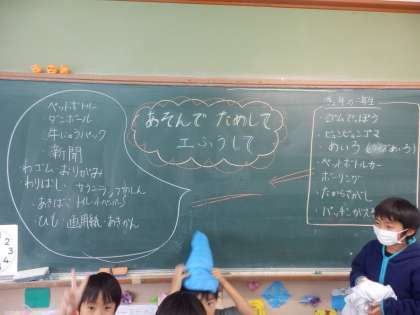 ペットボトル
ダンボール
牛にゅうパック
新聞
わゴム おりがみ
わりばし・サランラップのしん
あきばこ・トイレットペーパー
ひも・画用紙・あきかん
あそんで ためして
工ふうして
今年の一年生
・ゴムでっぽう
・ビュンビュンゴマ
・めいろ
・ペットボトルカー
・ボーリング
・たからさがし
・パッチンガエル
1
2
3
4